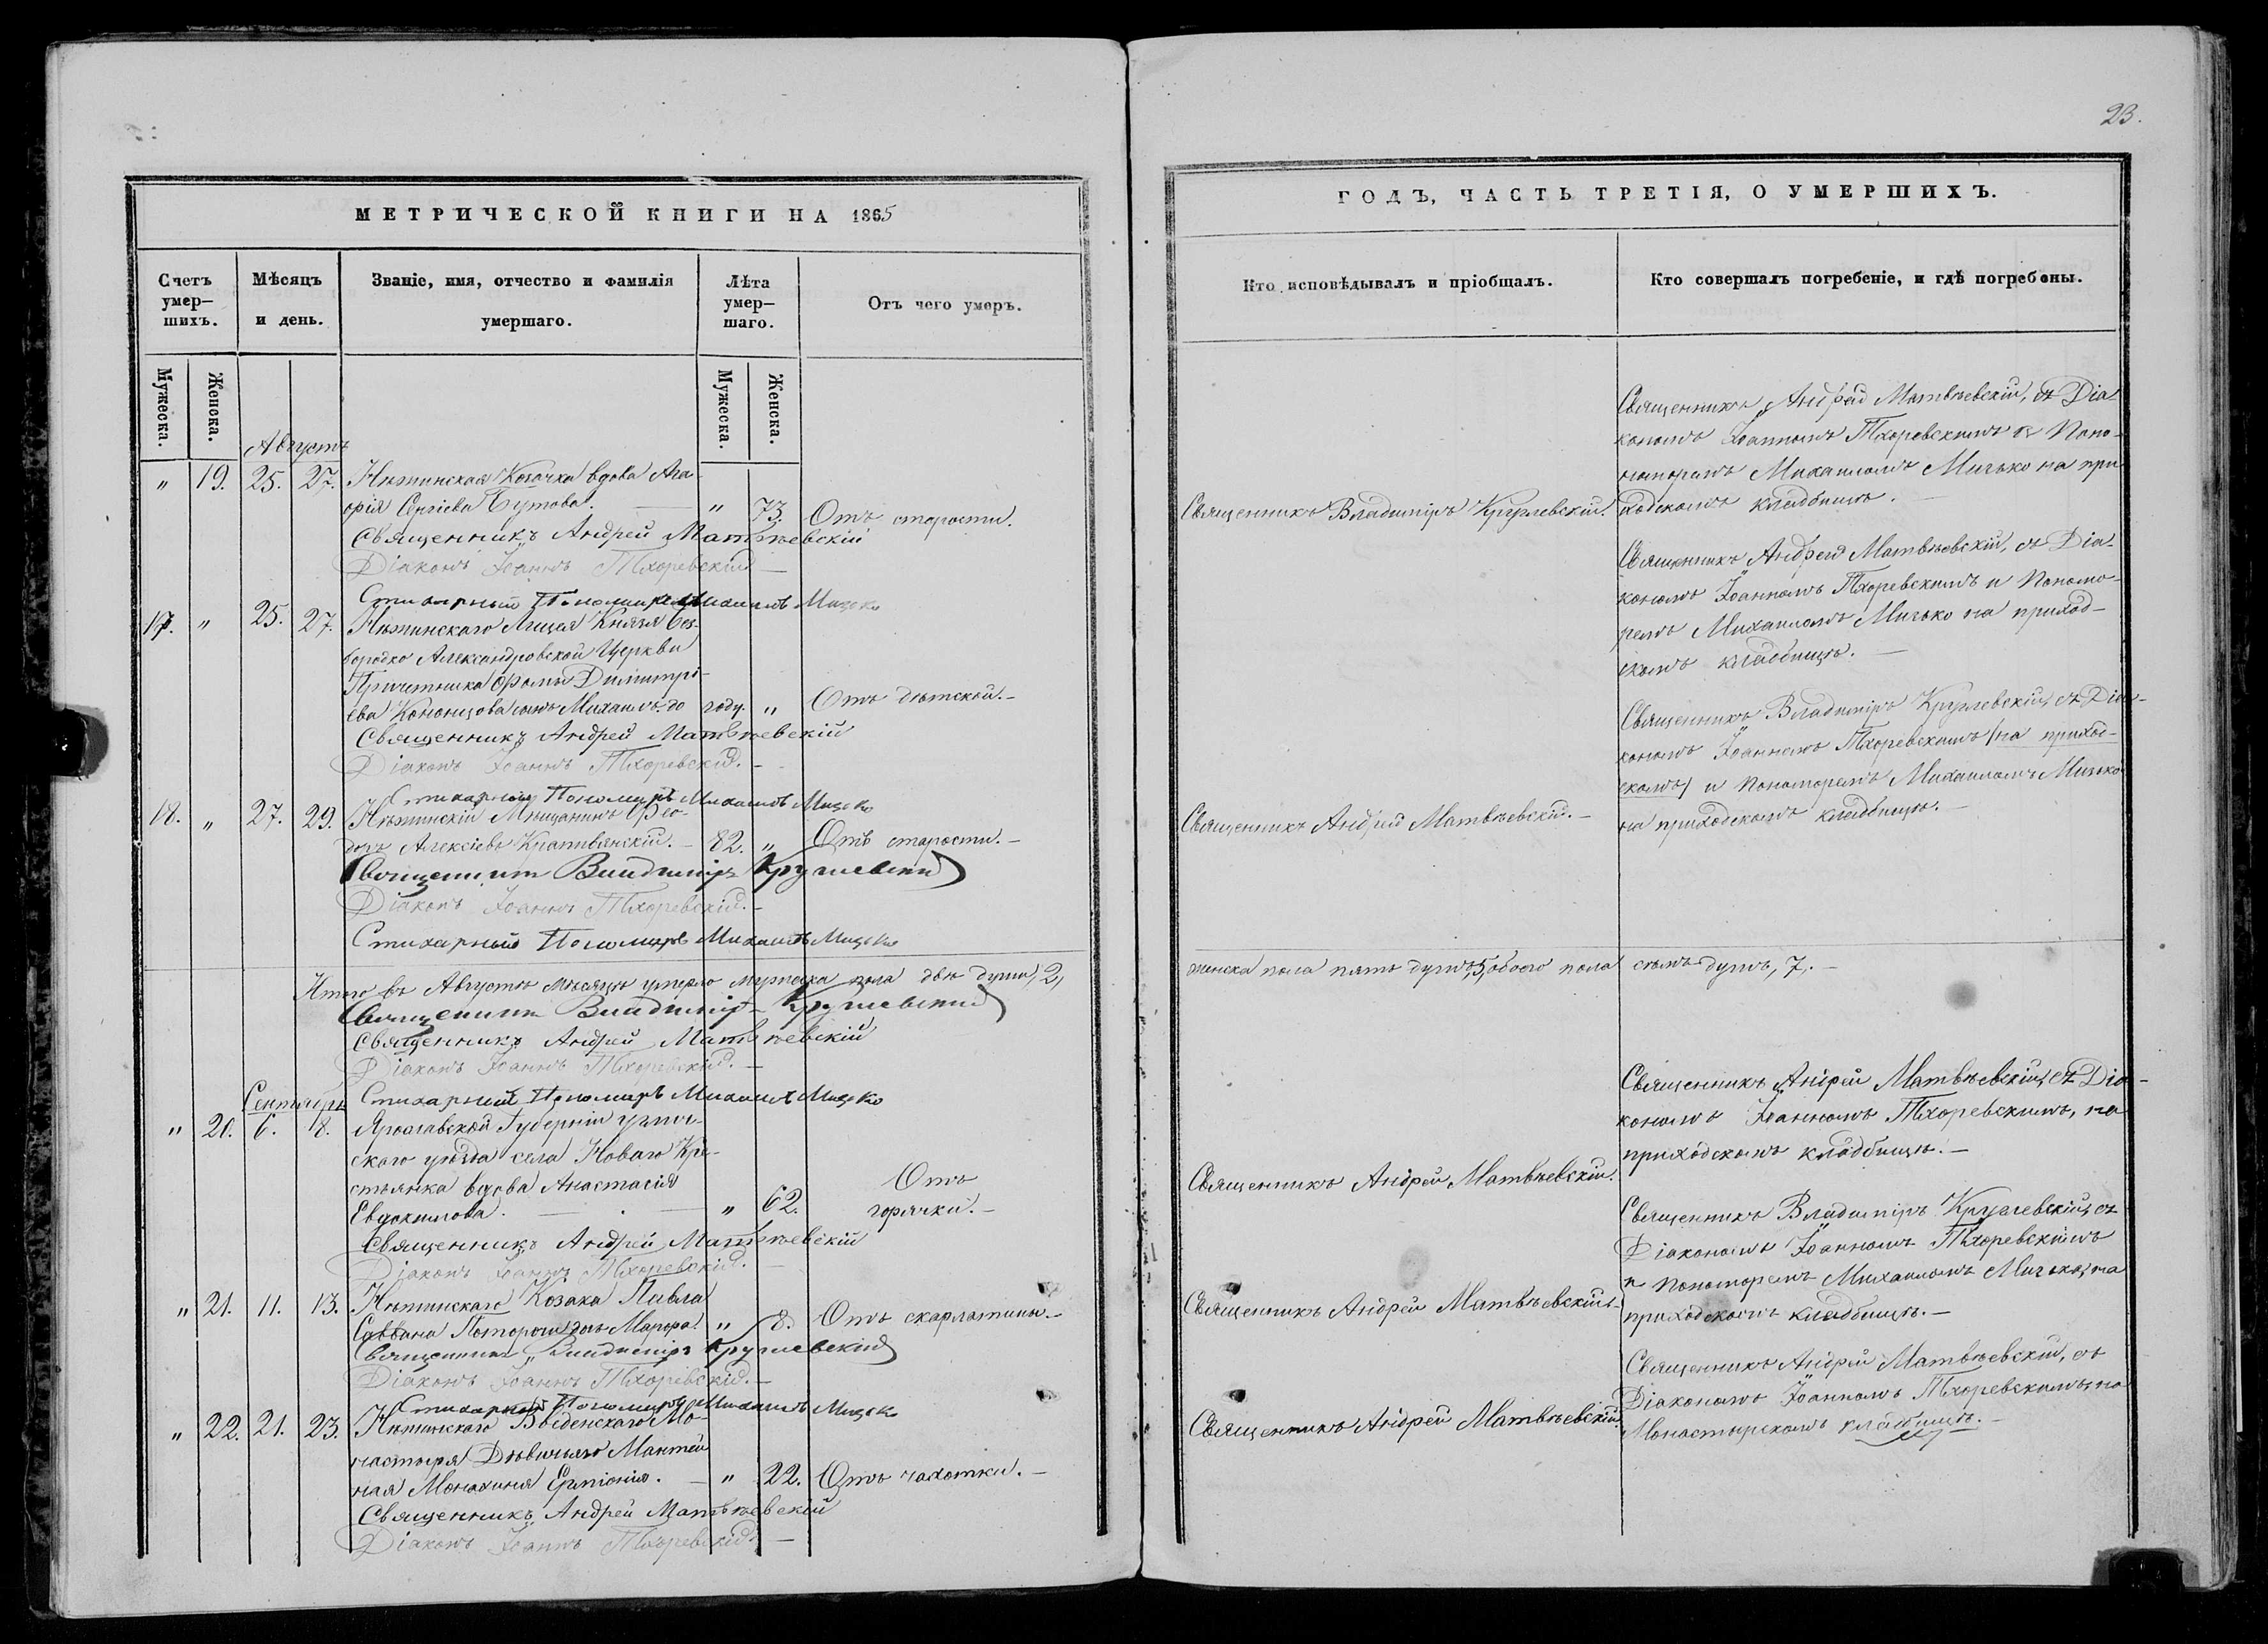 23.
МЕТРИЧЕСКОЙ КНИГИ НА 1865
Счетъ умер–шихъ.
Мѣсяцъ и день.
Званіе, имя, отчество и фамилія умершаго.
Лѣта умер–шаго.
Отъ чего умеръ.
Мужеска.
Женска.
Мужеска.
Женска.
Августъ
„ 19. 25. 27. Нѣжинская Козачка вдова Ага-
фія Сергіева Бутова. — „ 73. Отъ старости.
Священникъ Андрей Матвѣевскій
Діаконъ Іоаннъ Тхоревскій —
Стихарный Пономарь Михаилъ Мицько
17. „ 25. 27. Нѣжинскаго Лицея Князя Без-
бородко Александровской Церкви
Причетника Ѳомы Димитрі-
ева Кононцова сынъ Михаилъ до году. „ Отъ дѣтской. —
Священникъ Андрей Матвѣевскій
Діаконъ Іоаннъ Тхоревскій. —
Стихарный Пономарь Михаилъ Мицько
18. „ 27. 29. Нѣжинскій Мѣщанинъ Ѳео-
доръ Алексіевъ Крапивянскій. — 82. „ Отъ старости. —
Священникъ Владиміръ Круглевскій
Діаконъ Іоаннъ Тхоревскій. —
Стихарный Пономарь Михаилъ Мицько
Итого въ Августѣ мѣсяцѣ умерло мужеска пола двѣ души, 2,
Священникъ Владиміръ Круглевскій
Священникъ Андрей Матвѣевскій
Діаконъ Іоаннъ Тхоревскій. —
Стихарный Пономарь Михаилъ Мицько
Сентябрь
„ 20. 6. 8. Ярославской Губерніи
скаго уѣзда села Новаго Кре-
стьянка вдова Анастасія
Евдокимова. — „ 62. Отъ горячки. —
Священникъ Андрей Матвѣевскій
Діаконъ Іоаннъ Тхоревскій. —
„ 21. 11. 13. Нѣжинскаго Козака Павла
Саввина дочь Марѳа. „ 8. Отъ скарлатины. —
Священникъ Владиміръ Круглевскій
Діаконъ Іоаннъ Тхоревскій. —
Стихарный Пономарь Михаилъ Мицько
„ 22. 21. 23. Нѣжинскаго Введенскаго Мо-
настыря Дѣвичьяго
ная Монахиня — „ 22. Отъ чахотки. —
Священникъ Андрей Матвѣевскій
Діаконъ Іоаннъ Тхоревскій —
ГОДЪ, ЧАСТЬ ТРЕТІЯ, О УМЕРШИХЪ.
Кто исповѣдывалъ и пріобщалъ.
Кто совершалъ погребеніе, и гдѣ погребены.
Священникъ Андрей Матвѣевскій, съ Діа-
кономъ Іоанномъ Тхоревскимъ и Поно-
номоремъ Михаиломъ Мицько на при-
Священникъ Владиміръ Круглевскій. ходскомъ кладбищѣ. —
Священникъ Андрей Матвѣевскій, съ Діа-
кономъ Іоанномъ Тхоревскимъ и Пономо-
ремъ Михаиломъ Мицько на приход-
скомъ кладбищѣ. —
Священникъ Владиміръ Круглевскій, съ Діа-
кономъ Іоанномъ Тхоревскимъ (на приход-
скомъ) и Пономоремъ Михаиломъ Мицько
Священникъ Андрей Матвѣевскій. — на приходскомъ кладбищѣ. —
женска пола пять душъ, 5, обоего пола семь душъ, 7. —
Священникъ Андрей Матвѣевскій, съ Діа-
кономъ Іоанномъ Тхоревскимъ, на
приходскомъ кладбищѣ. —
Священникъ Андрей Матвѣевскій.
Священникъ Владиміръ Круглевскій, съ
Діакономъ Іоанномъ Тхоревскимъ
и Пономоремъ Михаиломъ Мицько, на
Священникъ Андрей Матвѣевскій. — приходскомъ кладбищѣ. —
Священникъ Андрей Матвѣевскій, съ
Діакономъ Іоанномъ Тхоревскимъ, на
Священникъ Андрей Матвѣевскій. Монастырскомъ кладбищѣ. —